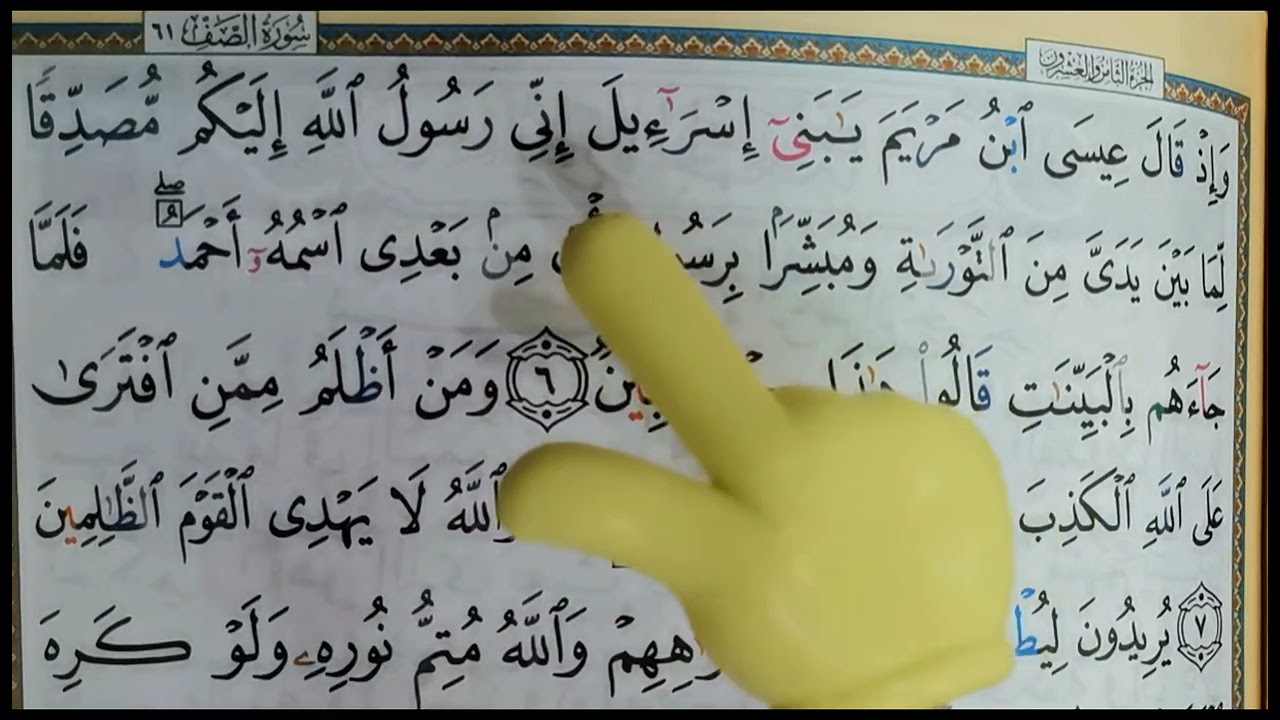 سُورَةُ الصَّفِّ ٦١
الجزء الثامن والعشرون
وَإِذْ قَالَ عِيسَى ٱبْنُ مَرْيَمَ يَـٰبَنِىٓ إِسْرَٰٓءِيلَ إِنِّى رَسُولُ ٱللَّهِ إِلَيْكُم مُّصَدِّقًا
لِّمَا بَيْنَ يَدَىَّ مِنَ ٱلتَّوْرَىٰةِ وَمُبَشِّرًۢا مِنۢ بَعْدِى ٱسْمُهُۥٓ أَحْمَدُ ۖ فَلَمَّا
جَآءَهُم بِٱلْبَيِّنَـٰتِ قَالُوا۟ هَـٰذَا ٦ وَمَنْ أَظْلَمُ مِمَّنِ ٱفْتَرَىٰ
عَلَى ٱللَّهِ ٱلْكَذِبَ لَا يَهْدِى ٱلْقَوْمَ ٱلظَّـٰلِمِينَ
٧ يُرِيدُونَ وَٱللَّهُ مُتِمُّ نُورِهِۦ وَلَوْ كَرِهَ